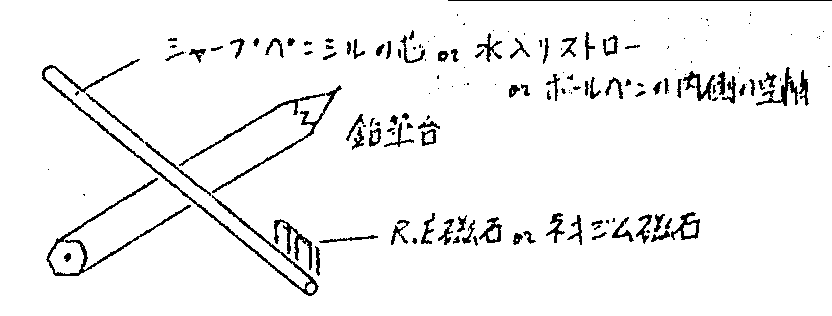 シャープペンシルの芯 or 水入りストロー
or ボールペンの内側の空柄
鉛筆台
R.E磁石 or ネオジム磁石